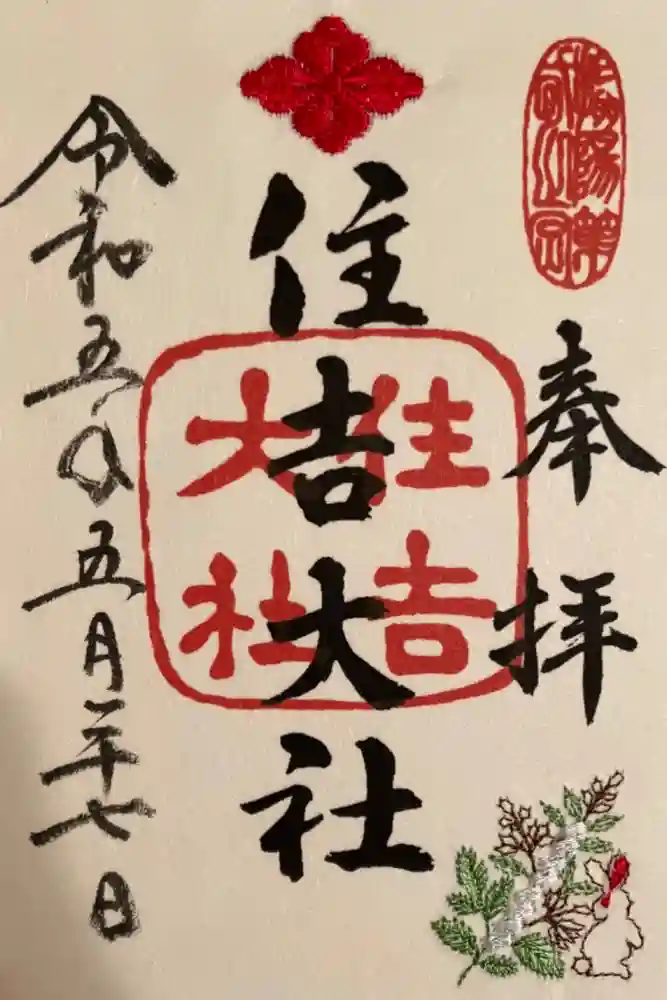 奉拝
住吉大社
住吉
大社
令和五年五月二十七日